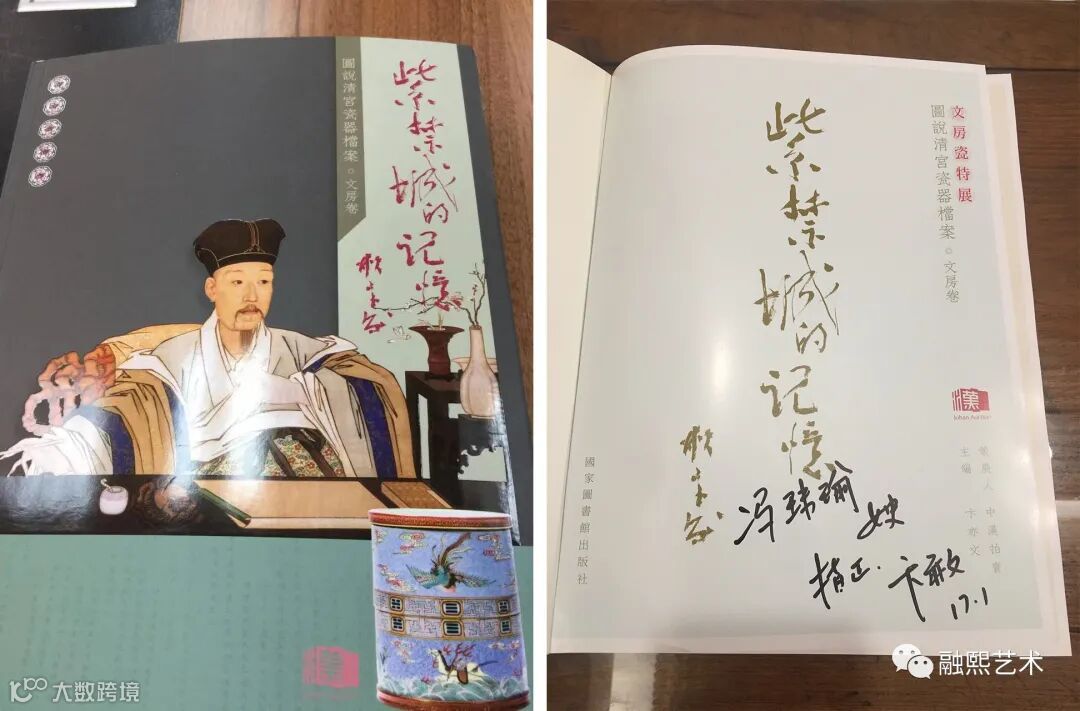 圖說清宮瓷器檔案·文房卷
紫禁城的记憶
大数跨境
文房瓷特展
圖說清宮瓷器檔案·文房卷
紫禁城的记憶
國家圖書館出版社
中漢拍賣
主編 卞亦文
冯玮瑜
指正.
17.1
融熙艺术